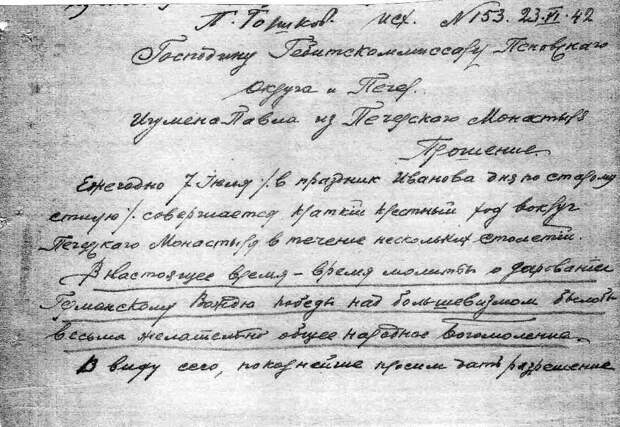 П. Горшков. исх. №153. 23.VI.42
Господину Гебитскоммиссару Псковского
округа и Печер.
Игумена Павла из Печерского Монастыря
Прошение.
Ежегодно 7 Июля /. в праздник Иванова дня по старому
стилю /. совершается краткій крестный ход вокруг
Печерского Монастыря в течение нескольких столетій.
В настоящее время – время молитвы о даровании
Германскому Вождю победы над большевизмом было бы
весьма желательно общее народное богомоление.
В виду сего, покорнейше просим дать разрешение